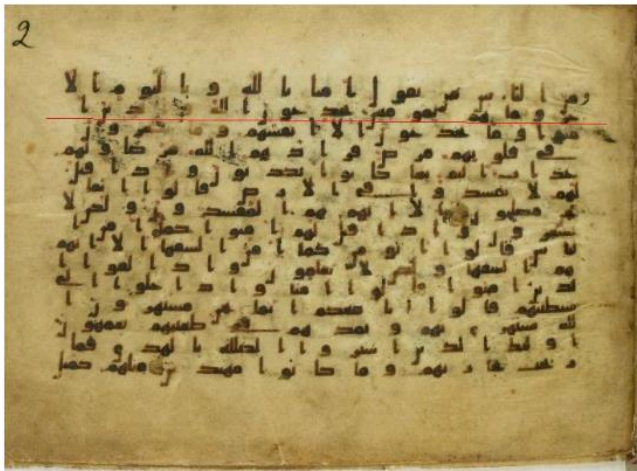 2
ومن الناس من يقول امنا بالله وباليوم الا
خر وما هم بمومنين يخدعون الله والذين ا
منوا وما يخدعون الا انفسهم وما يشعرون
في قلوبهم مرض فزادهم الله مرضا ولهم
عذاب اليم بما كانوا يكذبون واذا قيل
لهم لا تفسدوا في الارض قالوا انما
نحن مصلحون الا انهم هم المفسدون ولكن لا
يشعرون واذا قيل لهم امنوا كما امن ا
لناس قالوا انومن كما امن السفها الا انهم
هم السفها ولكن لا يعلمون واذا لقوا ا
لذين امنوا قالوا امنا واذا خلوا الى
شيطينهم قالوا انا معكم انما نحن مستهزون ا
لله يستهزي بهم ويمدهم في طغينهم يعمهون
اوليك الذين اشتروا الضللة بالهدى فما
ربحت تجارتهم وما كانوا مهتدين مثلهم كمثل